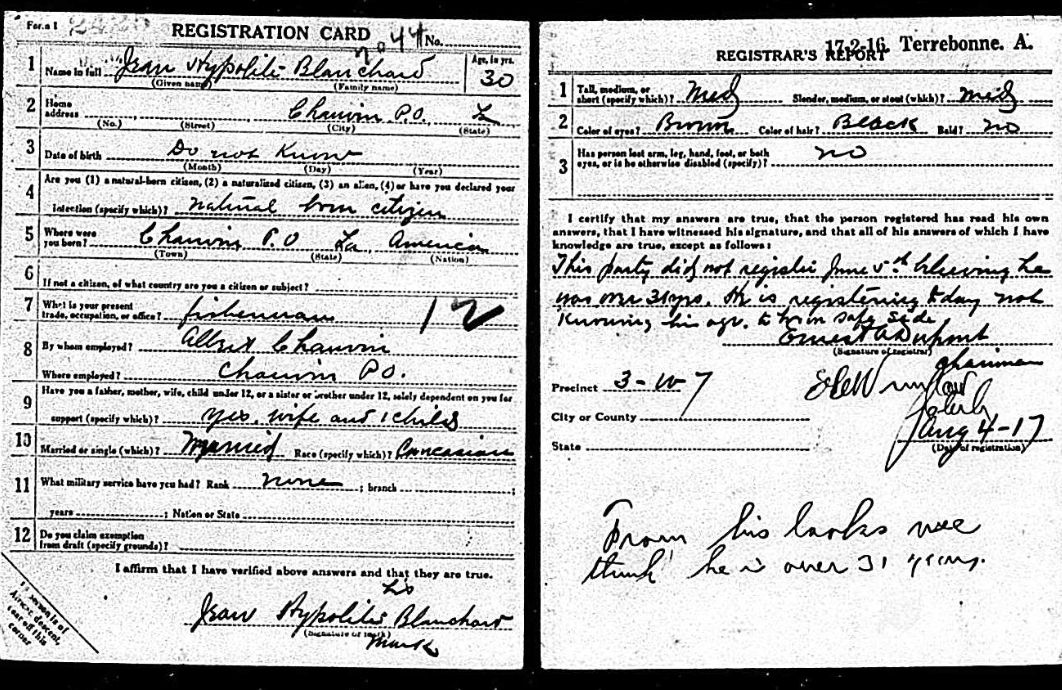 Form 1
REGISTRATION CARD
No.
1 Name in full Jean Hypolite Blanchard Age, in yrs. 30
(Given name) (Family name)
2 Home address Chauvin P.O. La
(No.) (Street) (City) (State)
3 Date of birth Do not Know
(Month) (Day) (Year)
4 Are you (1) a natural-born citizen, (2) a naturalized citizen, (3) an alien, (4) or have you declared your
intention (specify which)? natural born citizen
5 Where were you born? Chauvin P.O La America
(Town) (State) (Nation)
6 If not a citizen, of what country are you a citizen or subject?
7 What is your present trade, occupation, or office? fisherman 12
8 By whom employed? Albert Chauvin
Where employed? Chauvin P.O.
9 Have you a father, mother, wife, child under 12, or a sister or brother under 12, solely dependent on you for
support (specify which)? yes, wife and 1 child
10 Married or single (which)? Married Race (specify which)? Caucasian
11 What military service have you had? Rank none ; branch ;
years ; Nation or State
12 Do you claim exemption from draft (specify grounds)?
I affirm that I have verified above answers and that they are true.
his
Jean Hypolite Blanchard
(Signature or mark)
mark
If person is of African descent, tear off this corner
17-2-16 Terrebonne. A.
REGISTRAR'S REPORT
1 Tall, medium, or short (specify which)? Med Slender, medium, or stout (which)? med
2 Color of eyes? Brown Color of hair? Black Bald? no
3 Has person lost arm, leg, hand, foot, or both eyes, or is he otherwise disabled (specify)? no
I certify that my answers are true, that the person registered has read his own
answers, that I have witnessed his signature, and that all of his answers of which I have
knowledge are true, except as follows:
This party did not register June 5th bleiving he
was over 31 yrs. He is registering today not
Knowing his age. to be on safe side
Ernest A Dupont
(Signature of registrar)
chairman
Precinct 3-W 7
City or County
State
Aug 4-17
(Date of registration)
From his looks we
think he is over 31 years.